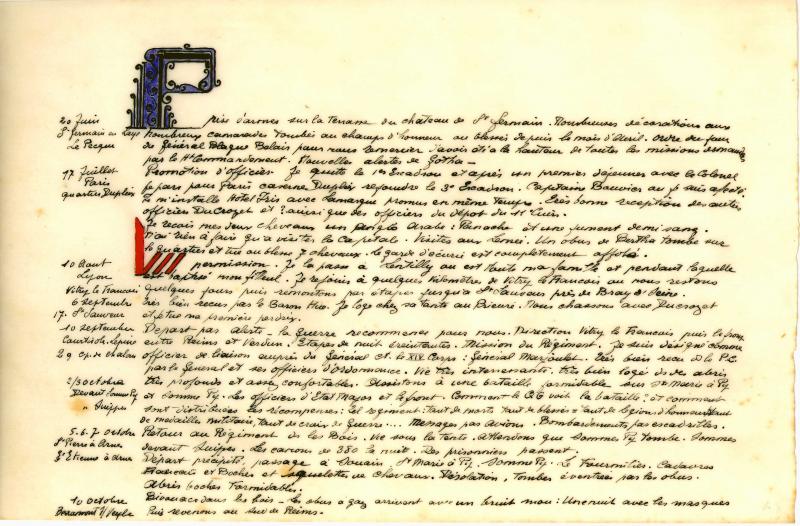 20 Juin
St Germain en Laye
Le Pecque
Prise d'armes sur la terrasse du château de St Germain. Nombreuses décorations aux
nombreux camarades tombés au champs d'honneur ou blessés depuis le mois d'Avril. Ordre du jour
de Général Blague Belais pour nous remercier d'avoir été à la hauteur de toutes les missions demandées
par le Ht Commandement. Nouvelles alertes de Gotha -
17 Juillet
Paris
quartier Dupleix
Promotion d'officier. Je quitte le 1er Escadron et après un premier déjeuner avec le Colonel
je pars pour Paris caserne Dupleix rejoindre le 3e Escadron. Capitaine Bouvier au je suis affecté
Je m'installe Hotel Iris avec Lamarque promus en même temps. Très bonne reception des autres
officier Ducrozet et ainsi que des officiers du dépot du 11e Cuirs.
Je reçois mes deux chevaux un Anglo Arabe : Panache et une jument demi sang.
N'ai rien à faire qu'à visiter la Capitale. Visites aux Un obus de Bertha tombe sur
le quartier et tue ou blesse 7 chevaux. Le garde d'écurie est complètement affolé.
10 Aout
Lyon
Vitry le Francais
permission. Je la passe à Lentilly ou est toute ma famille et pendant laquelle
est baptisé mon filleul. Je rejoins à quelques kilomètre de Vitry le Francais ou nous restons
quelques jours puis remontons par étapes jusqu'à St Sauveur près de Bray s/ Seine.
6 septembre
17. St Sauveur
très bien reçus par le Baron Je loge chez sa tante au Prieuré. Nous chassons avec Ducrozet
et je tue ma première perdrix.
10 septembre
Courtisols. Epine
29 cp. de Chalons
Depart par alerte - la Guerre recommence pour nous. Direction Vitry le Francais puis le front
entre Reims et Verdun. Etapes de nuit éreintantes. Mission du Régiment. Je suis désigné comme
officier de liaison auprès du Général Ct. le XIe Corps : Général Marjoulet. Très bien reçu à le P.C.
par le General et ses officiers d'ordonnance. Vie très interressante. très bien logés ds des abris
2/3 octobre
Devant Somme Py
" Suippes
très profonds et assez confortables. Assistons à une bataille formidable sur Ste Marie à Py
et Somme Py. Les officiers d'Etat Major et le front. Comment le Q.G voit la bataille ; et comment
sont distribuées les récompenses : tel régiment : tant de morts tant de blessés = tant de légions d'honneur tant
de médaille militaire, tant de croix de Guerre... Messages par avions. Bombardements par escadrilles.
5. 6. 7 octobre
St Pierre à Arnes
St Etienne à Arnes
Retour au Régiment ds les Bois. Vie sous la tente. Attendons que Somme Py tombe. Sommes
devant Suippes. Les canons de 380 la nuit. Des prisonniers passent.
Départ précipité, passage à Souain, St Marie à Py, Somme Py. Le Cadavres
Francais et Boches et squelettes de chevaux. Désolation, tombes éventrées par les obus.
Abris boches formidables.
10 octobre
s/ Vesle
Bivouacs dans les bois - les obus a gaz arrivent avec un bruit mou : Une nuit avec les masques
Puis revenons au sud de Reims.